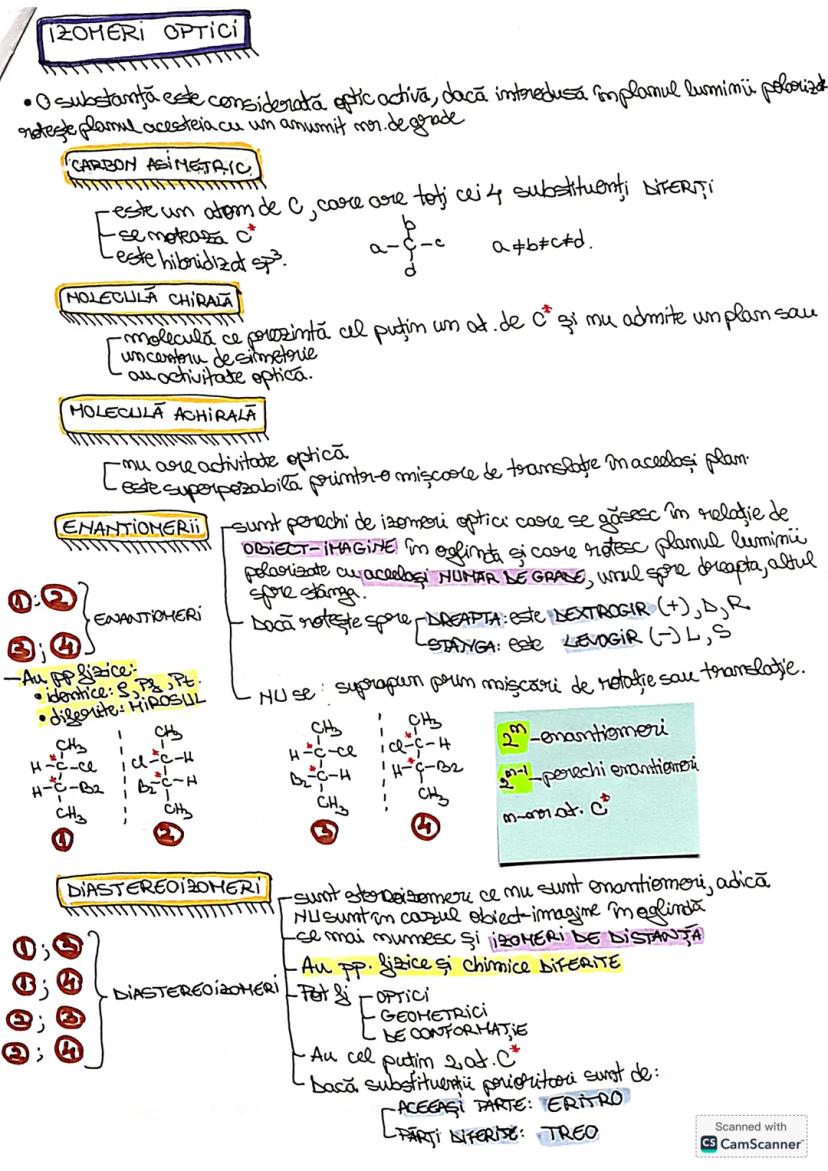 IZOMERI OPTICI
• O substanță este considerată optic activă, dacă introdusă în planul luminii polarizat
rotește planul acesteia cu un anumit nr. de grade
CARBON ASIMETRIC
este un atom de C, care are toți cei 4 substituenți DIFERIȚI
se notează C*
este hibridizat sp³.
b
a-C-c a≠b≠c≠d.
d
MOLECULĂ CHIRALĂ
moleculă ce prezintă cel puțin un at. de C* și nu admite un plan sau
un centru de simetrie
au activitate optică.
MOLECULĂ ACHIRALĂ
nu are activitate optică
este superpozabilă printr-o mișcare de translație în același plan.
ENANTIOMERII
sunt perechi de izomeri optici care se găsesc în relație de
OBIECT-IMAGINE în oglindă și care rotesc planul luminii
polarizate cu același NUMĂR DE GRADE, unul spre dreapta, altul
spre stânga.
Dacă rotește spre DREAPTA: este DEXTROGIR (+), D, R
STÂNGA: este LEVOGIR (-) L, S
NU se: suprapun prin mișcări de rotație sau translație.
1; 2
3; 4
ENANTIOMERI
- Au pp fizice:
• identice: ρ, Pf, Pt.
• diferite: MIROSUL
CH₃ CH₃ CH₃ CH₃
H-C*-Cl Cl-C*-H H-C*-Cl Cl-C*-H
H-C*-Br Br-C*-H Br-C*-H H-C*-Br
CH₃ CH₃ CH₃ CH₃
1 2 3 4
2ⁿ - enantiomeri
2ⁿ⁻¹ - perechi enantiomeri
n-nr at. C*
DIASTEREOIZOMERI
sunt stereoizomeri ce nu sunt enantiomeri, adică
NU sunt în cazul obiect-imagine în oglindă
se mai numesc și IZOMERI DE DISTANȚĂ
Au pp. fizice și chimice DIFERITE
Pot fi OPTICI
GEOMETRICI
DE CONFORMAȚIE
Au cel puțin 2 at. C*
Dacă substituenții prioritari sunt de:
ACEEAȘI PARTE: ERITRO
PĂRȚI DIFERITE: TREO
1; 3
1; 4
2; 3
2; 4
DIASTEREOIZOMERI
Scanned with
CS CamScanner